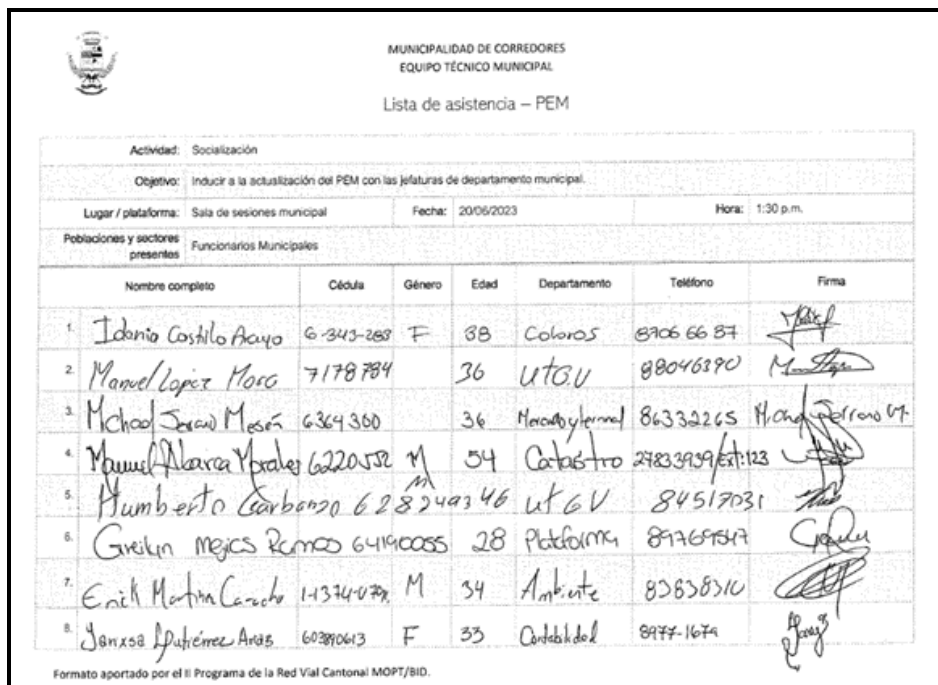 MUNICIPALIDAD DE CORREDORES
EQUIPO TÉCNICO MUNICIPAL
Lista de asistencia – PEM
Actividad: Socialización
Objetivo: Inducir a la actualización del PEM con las jefaturas de departamento municipal.
Lugar / plataforma: Sala de sesiones municipal Fecha: 20/06/2023 Hora: 1:30 p.m.
Poblaciones y sectores presentes Funcionarios Municipales
Nombre completo Cédula Género Edad Departamento Teléfono Firma
1. Idania Castillo Araya 6-343-283 F 38 8706 66 87
2. Manuel Lopez Mora 7178784 36 UTGV 88046390
3. Michael Serrano 6364300 36 86332265
4. Manuel Abarca Morales 6220552 M 54 Catastro 27833939/Ext:123
5. Humberto Garbanzo M UTGV 84517031
6. Greilyn Mejias Ramos 64190055 28 Plataforma 89769547
7. Erick M 34 Ambiente 83838310
8. Gutiérrez Arias 603890613 F 33 Contabilidad 8977-1679
Formato aportado por el II Programa de la Red Vial Cantonal MOPT/BID.